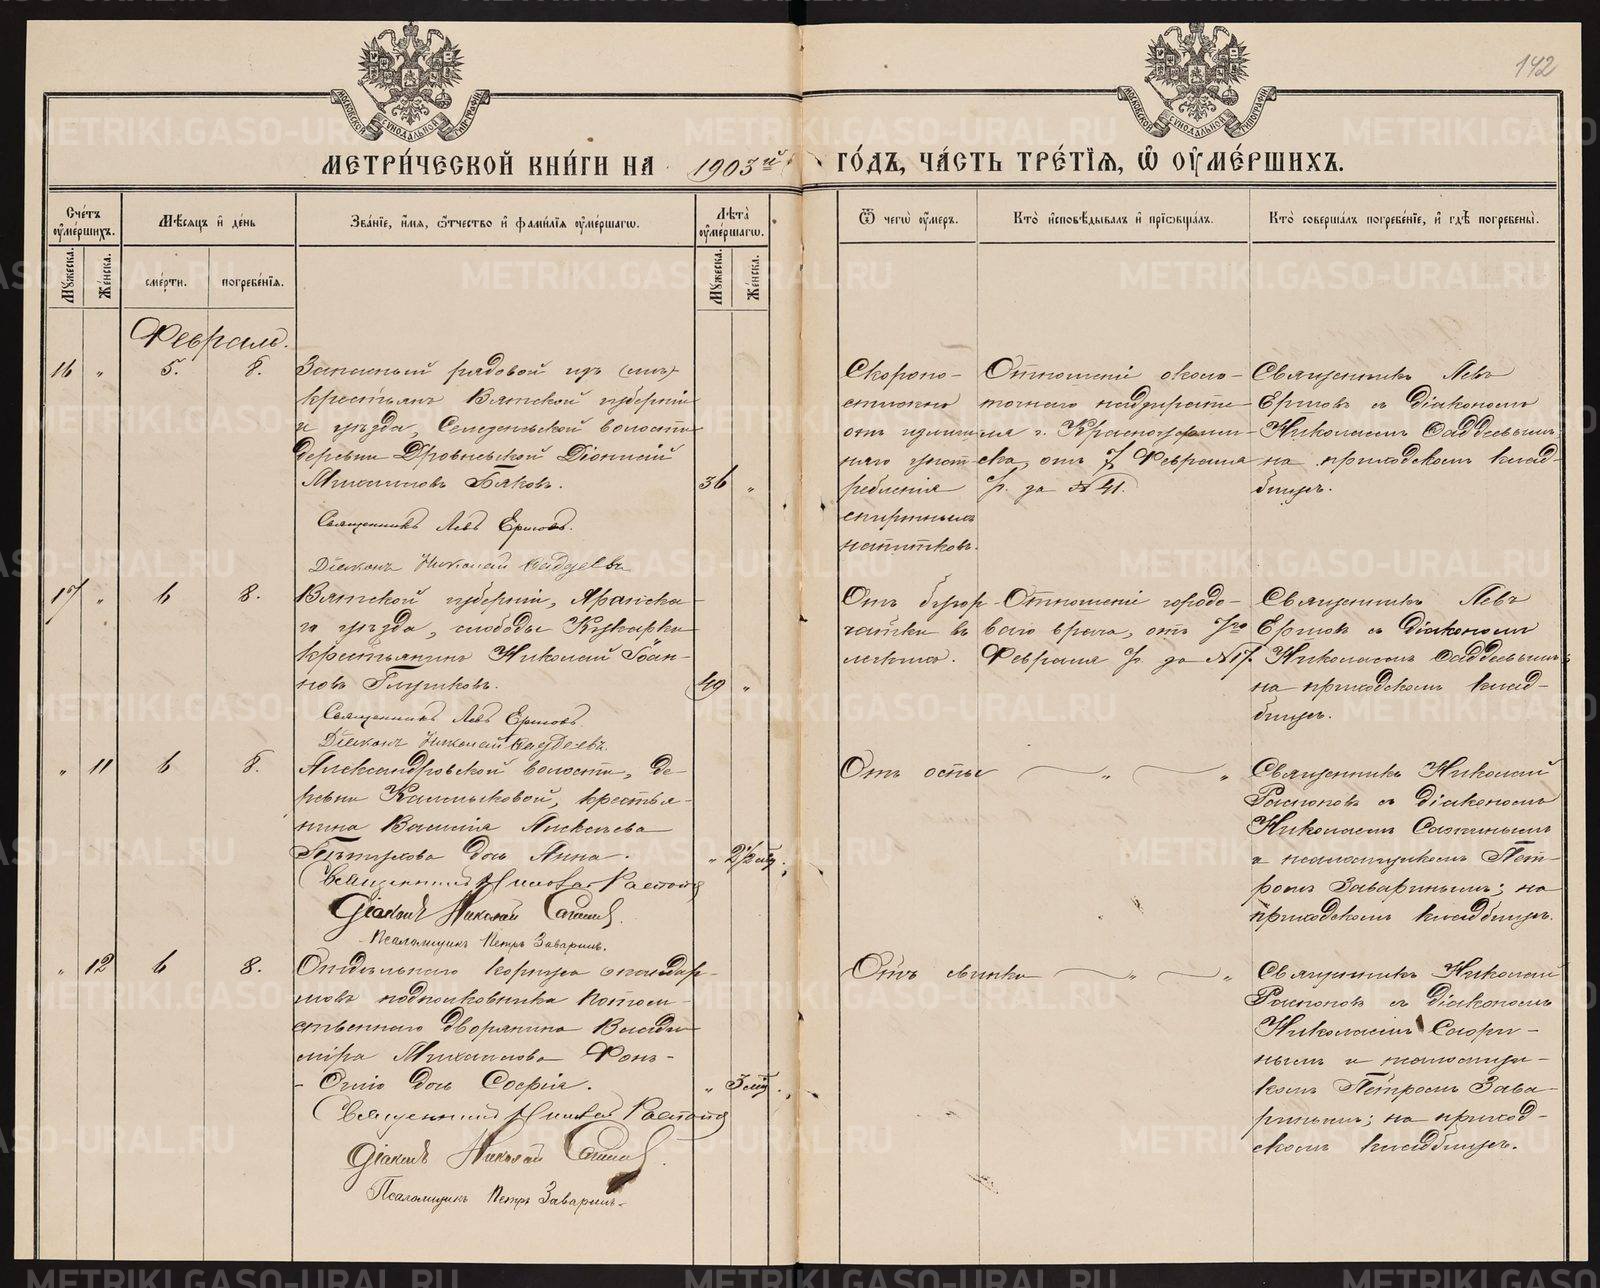 142
МОСКОВСКОЙ СѴНОДАЛЬНОЙ ТИПОГРАФІИ
МОСКОВСКОЙ СѴНОДАЛЬНОЙ ТИПОГРАФІИ
МЕТРИ́ЧЕСКОЙ КНИ́ГИ НА 1903й ГО́ДЪ, ЧА́СТЬ ТРЕ́ТІѦ, Ѡ ОУМЕ́РШИХЪ.
Сче́тъ оуме́ршихъ.
Мѣсяцъ и де́нь
Зва́ніе, и́мя, ѻ́тчество и фами́лія оуме́ршагѡ.
Лѣта̀ оуме́ршагѡ.
Ѿ чегѡ̀ оу́меръ.
Кто̀ исповѣ́дывалъ и прїѡбща́лъ.
Кто̀ соверша́лъ погребе́ніе, и гдѣ̀ погребены̀.
Мꙋ́жеска.
Же́нска.
сме́рти.
погребе́нія.
Мꙋ́жеска.
Же́нска.
Февраль.
16 " 5. 8.
Запасный рядовой изъ
крестьянъ Вятской губерніи
и уѣзда, волости
деревни Діонисій
Михаиловъ Бяковъ. 36 "
Священникъ Левъ Ершовъ.
Діаконъ Николай Фаддеевъ
Скоропо-
стижно
отъ излиш-
няго упот-
ребленія
спиртныхъ
напитковъ.
Отношеніе около-
точнаго надзирате-
ля г. Красноуфим-
ска, отъ 7 Февраля
за № 41.
Священникъ Левъ
Ершовъ съ діакономъ
Николаемъ Фаддеевымъ,
на приходскомъ клад-
бищѣ.
17 " 6 8.
Вятской губерніи, Яранска-
го уѣзда, слободы Кукарки
крестьянинъ Николай Іоан-
новъ Глушковъ. 49 "
Священникъ Левъ Ершовъ.
Діаконъ Николай Фаддеевъ.
Отъ бугор-
чатки въ
легкихъ.
Отношеніе городо-
ваго врача, отъ 7го
Февраля за № 17.
Священникъ Левъ
Ершовъ съ діакономъ
Николаемъ Фаддеевымъ;
на приходскомъ клад-
бищѣ.
" 11 6 8.
Александровской волости, де-
ревни Калмыковой, крестья-
нина Василія Алексѣева
дочь Анна. " 2½ мѣс.
Священникъ Николай
Діаконъ Николай
Псаломщикъ Петръ Заваринъ.
Отъ оспы " "
Священникъ Николай
съ діакономъ
Николаемъ
и псаломщикомъ Пет-
ромъ Заваринымъ; на
приходскомъ кладбищѣ.
" 12 6 8.
Отдѣльнаго корпуса жандар-
мовъ подполковника потом-
ственнаго дворянина Влади-
міра Михаилова Фонъ-
дочь Софія. " 3 мѣс.
Священникъ Николай
Діаконъ Николай
Псаломщикъ Петръ Заваринъ.
Отъ " "
Священникъ Николай
съ діакономъ
Николаемъ
и псаломщи-
комъ Петромъ Зава-
ринымъ; на приход-
скомъ кладбищѣ.
METRIKI.GASO-URAL.RU